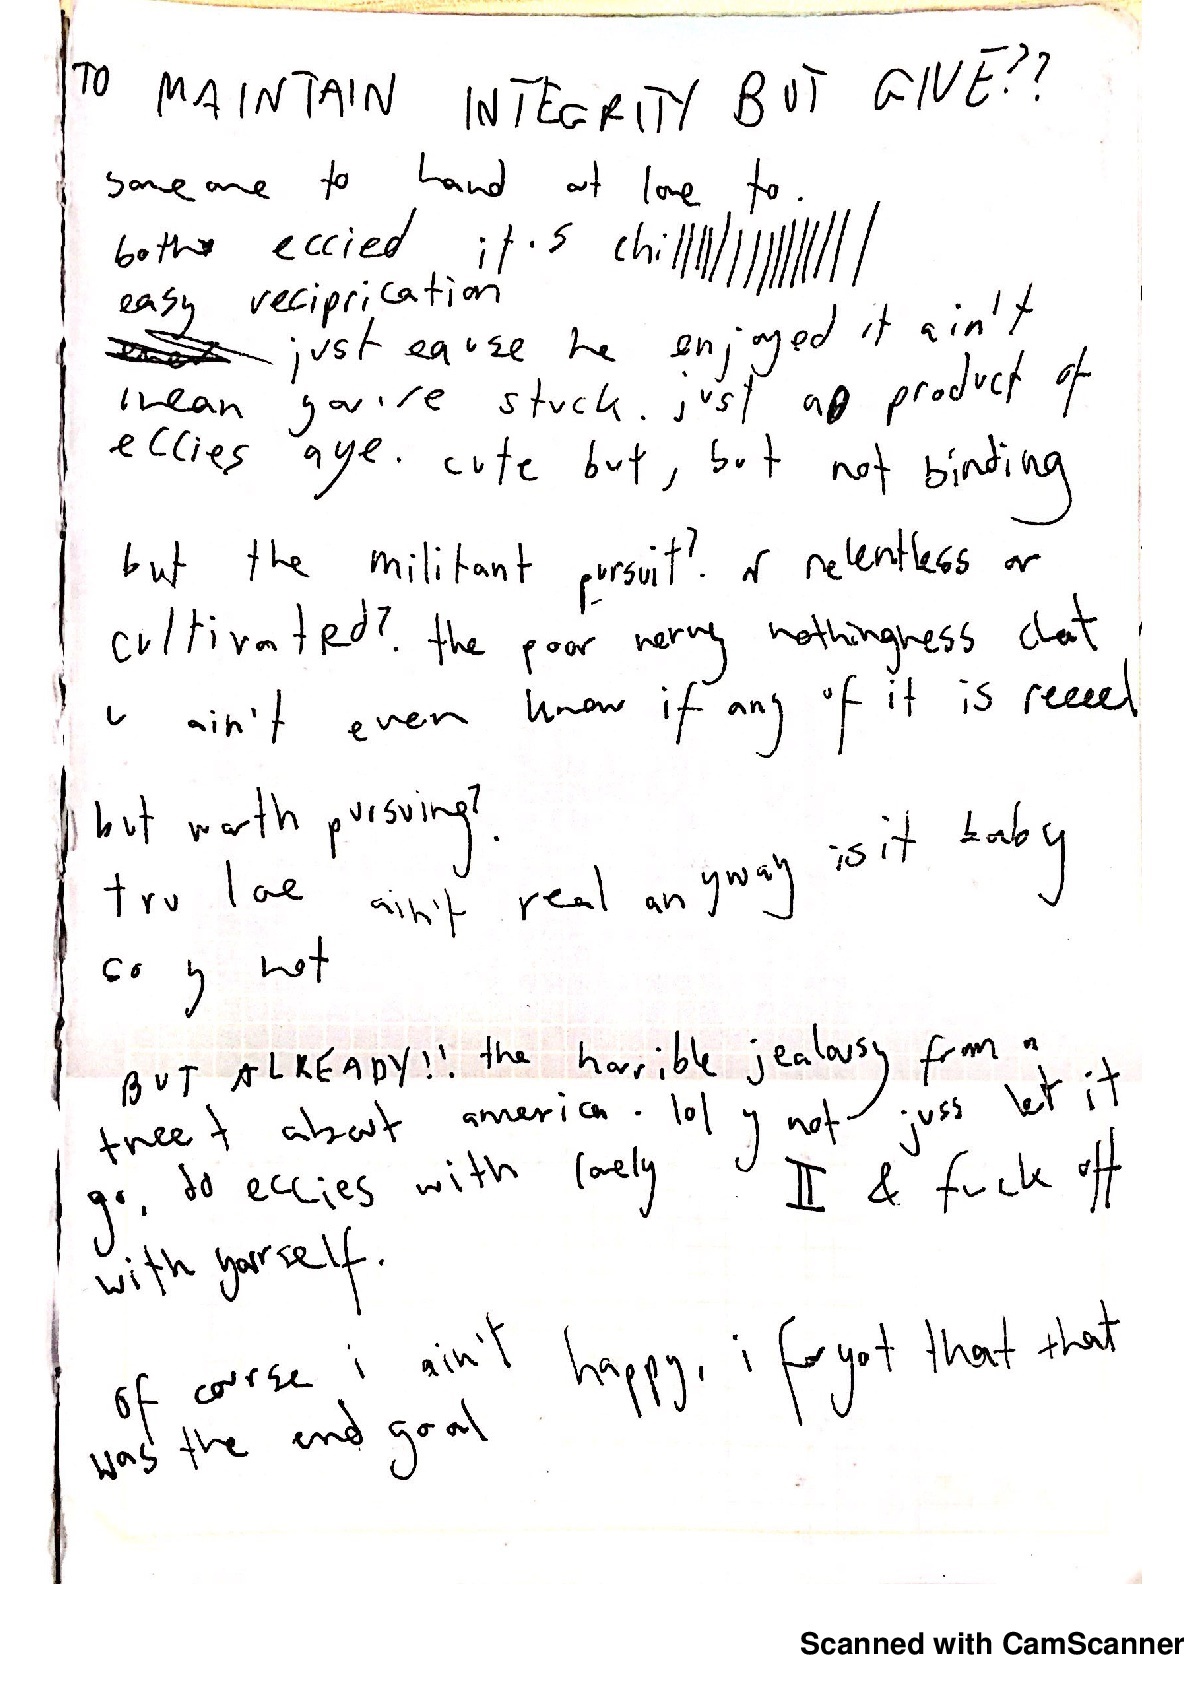 TO MAINTAIN INTEGRITY BUT GIVE??
someone to hand out love to.
both eccied it's chillllllllllllllll
easy reciprication
just cause he enjoyed it ain't
mean you're stuck. just a product of
eccies aye. cute but, but not binding
but the militant pursuit? or relentless or
cultivated?. the poor nervy nothingness that
u ain't even know if any of it is reeeel
but worth pursuing?.
tru love ain't real anyway is it baby
so y not
BUT ALREADY!! the horrible jealousy from a
tweet about america. lol y not juss let it
go, do eccies with lovely II & fuck off
with yourself.
of course i ain't happy, i forgot that that
was the end goal
Scanned with CamScanner